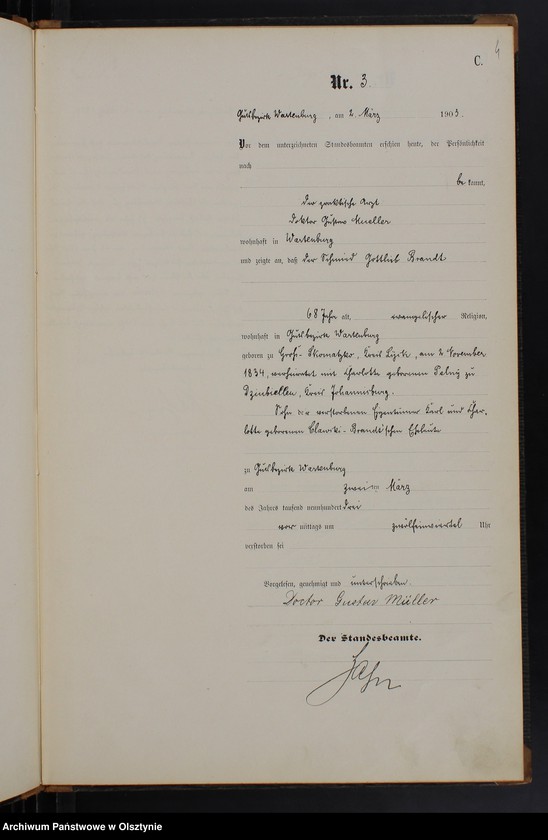 C.
4
Nr. 3.
Gutsbezirk Wartenburg, am 2. März 1903.
Vor dem unterzeichneten Standesbeamten erschien heute, der Persönlichkeit
nach
be kannt,
der praktische Arzt
Doktor Gustav Mueller
wohnhaft in Wartenburg
und zeigte an, daß der Schmied Gottlieb Brandt
68 Jahr alt, evangelischer Religion,
wohnhaft in Gutsbezirk Wartenburg
geboren zu Groß-Skomatzko, Kreis Lyck, am 2 November
1834, verheiratet mit Charlotte geborenen zu
Kreis Johannisburg.
Sohn der verstorbenen Eigentümer Karl und Char-
lotte geborenen Brandtschen Eheleute
zu Gutsbezirk Wartenburg
am zweiten März
des Jahres tausend neunhundert drei
vor mittags um zwölfeinviertel Uhr
verstorben sei
Vorgelesen, genehmigt und unterschrieben.
Doctor Gustav Müller
Der Standesbeamte.
Jahn
Archiwum Państwowe w Olsztynie